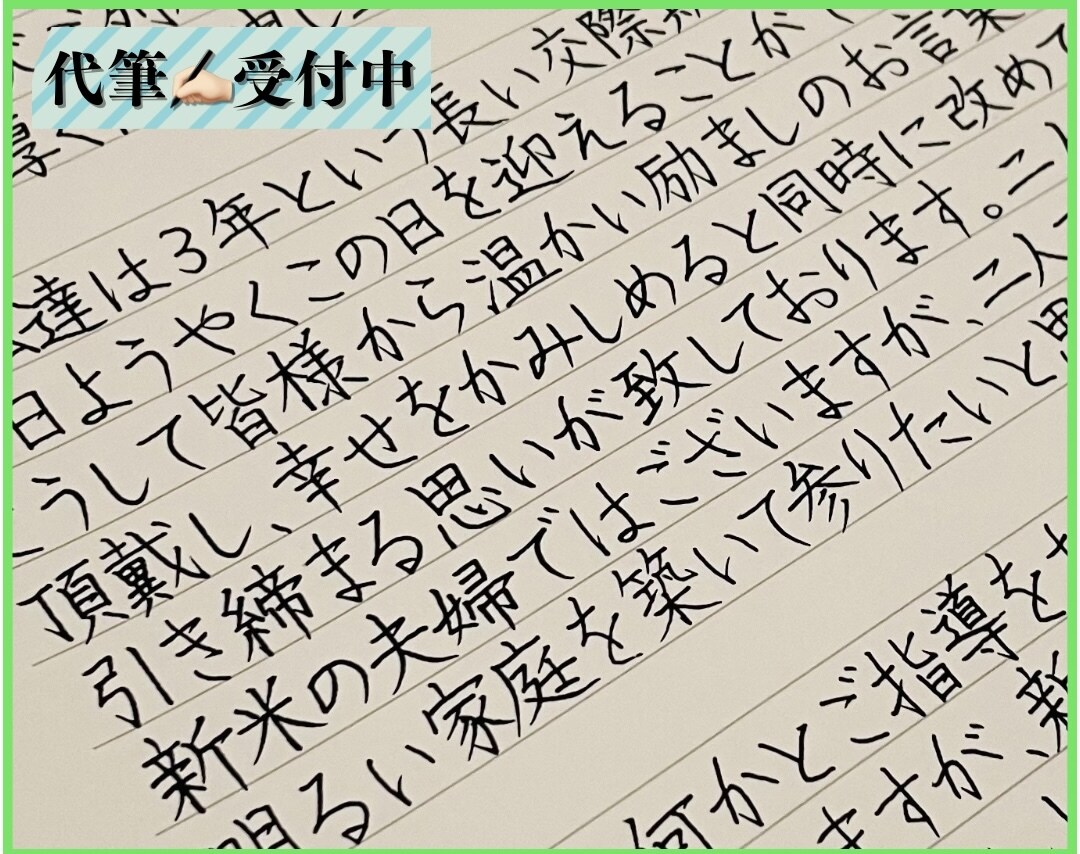 代筆✍🏻受付中
厚く
達は3年という長い交際
日ようやくこの日を迎えることが
うして皆様から温かい励ましのお言葉
頂戴し、幸せをかみしめると同時に改めて
引き締まる思いが致しております。二
新米の夫婦ではございますが、二人
明るい家庭を築いて参りたいと思
何かとご指導を
ますが、新